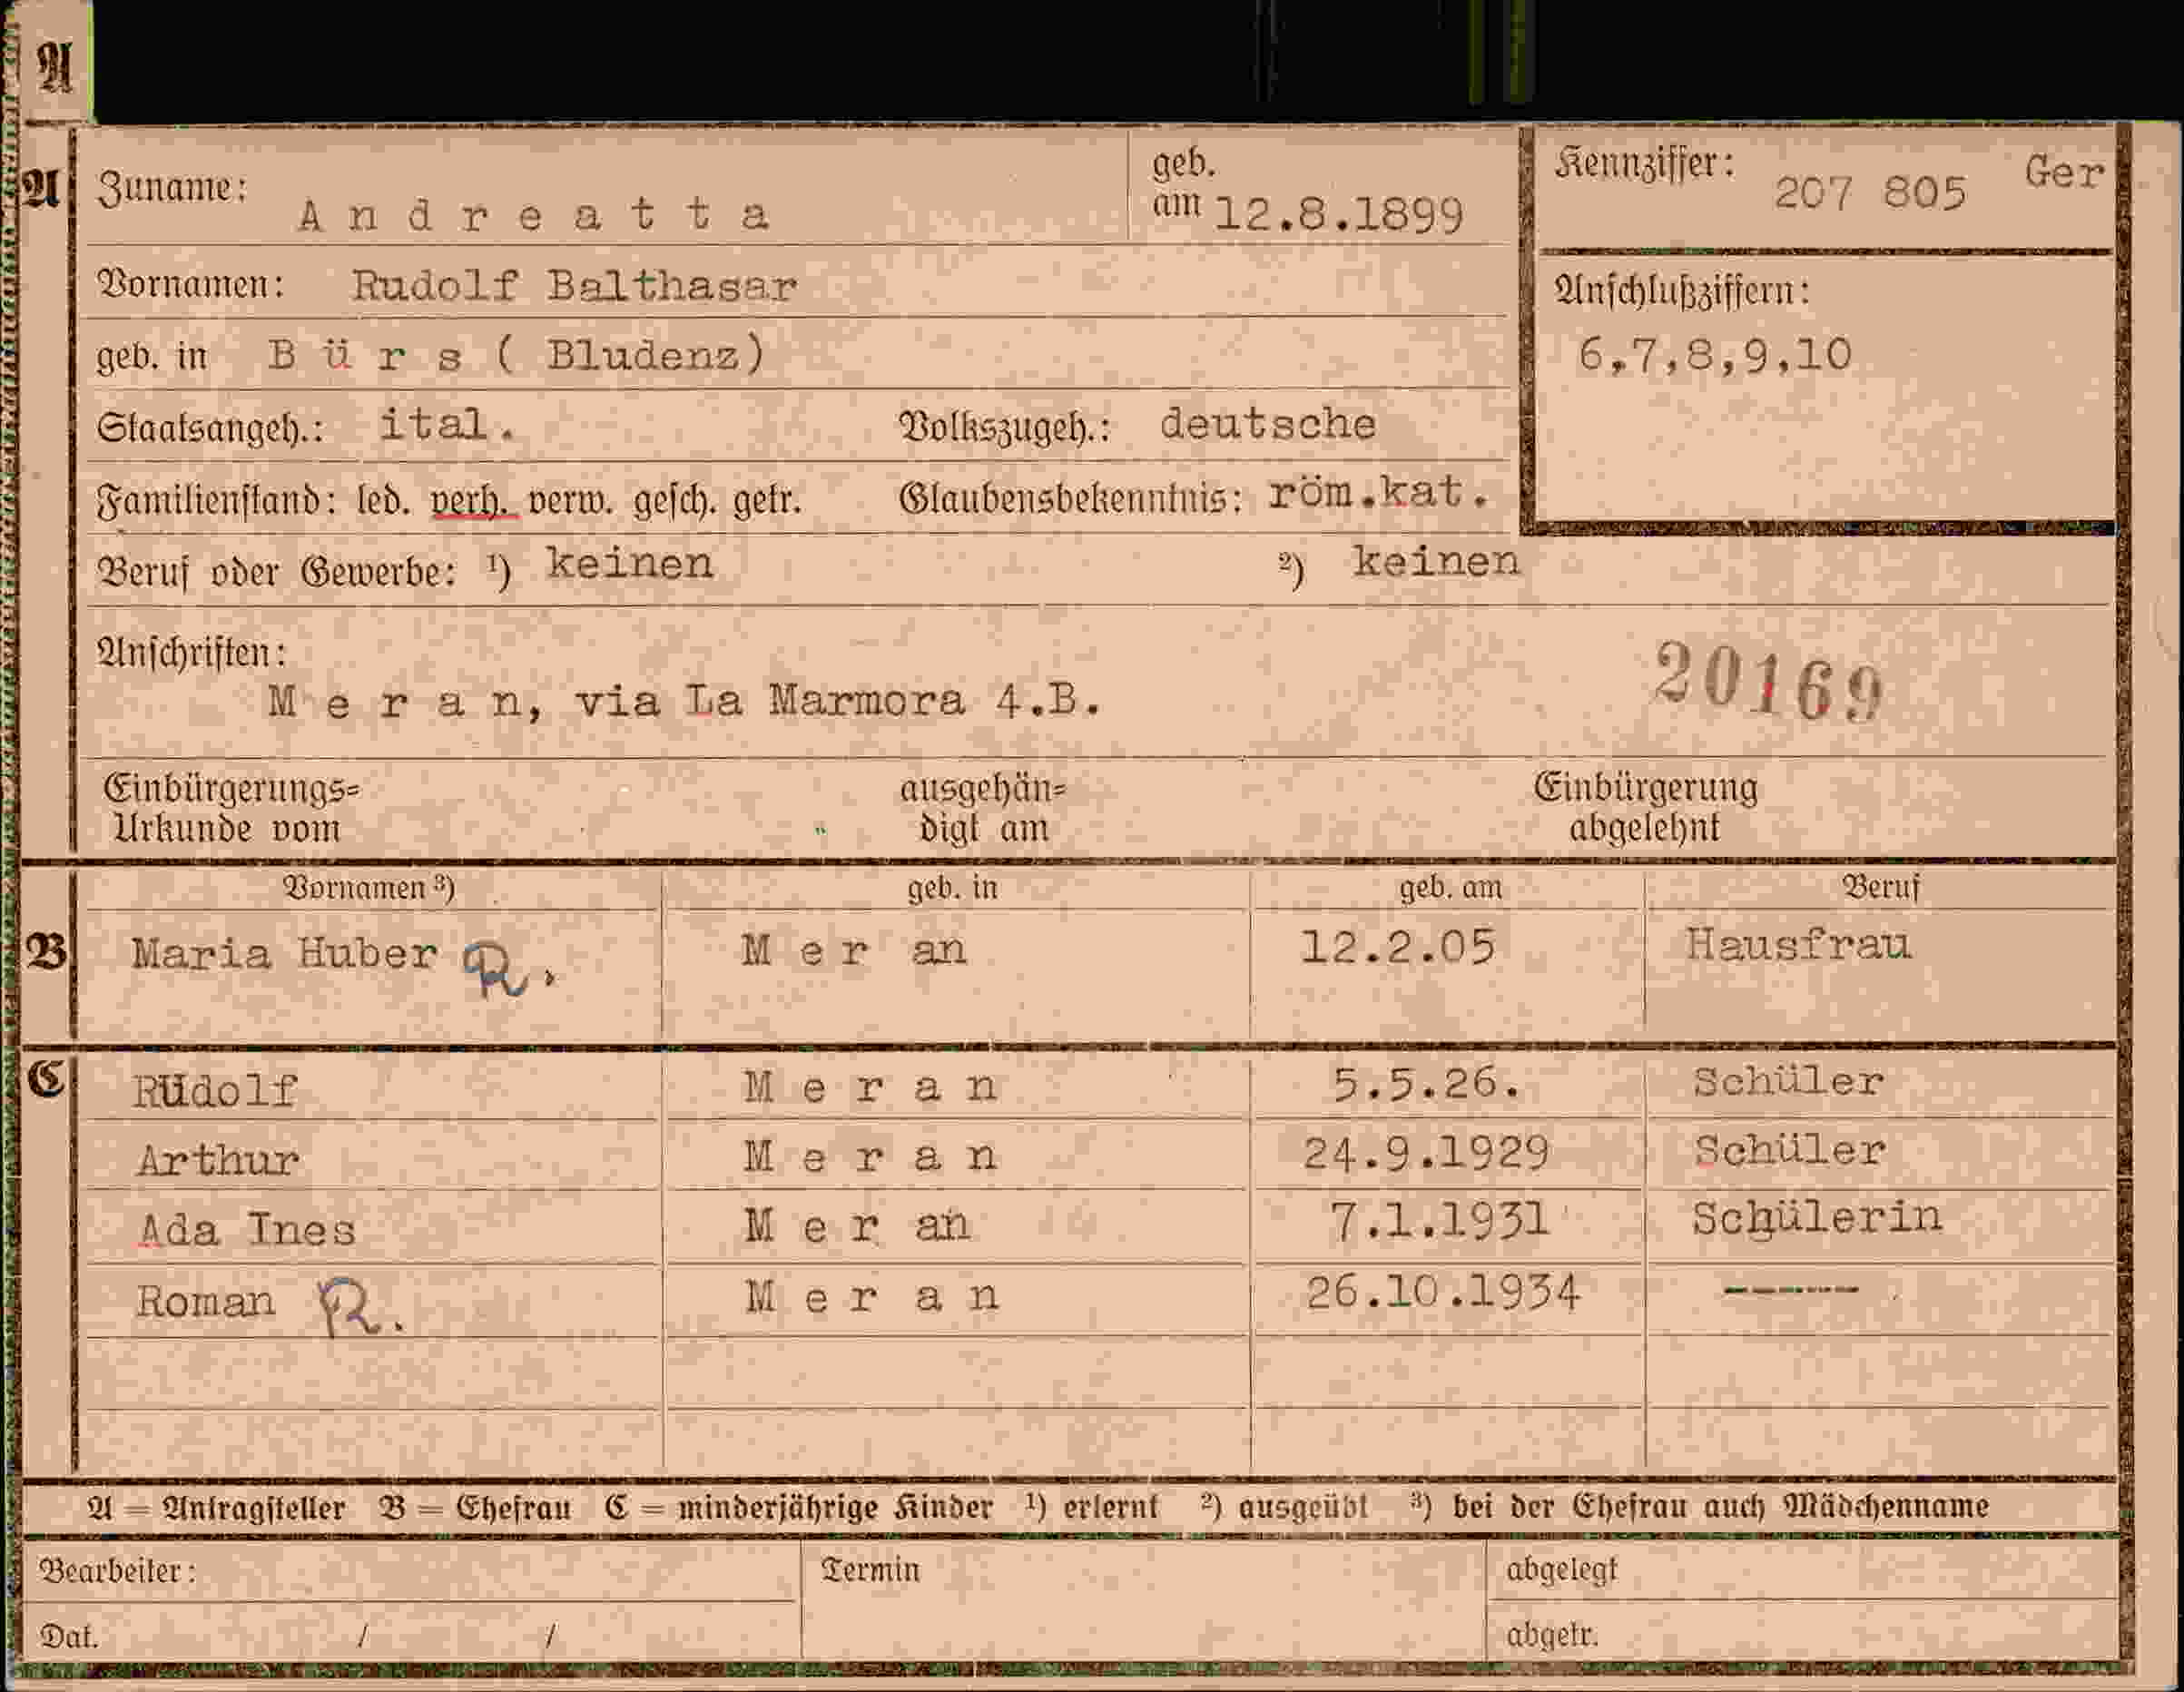 A
A Zuname: Andreatta geb. am 12.8.1899 Kennziffer: 207 805 Ger
Vornamen: Rudolf Balthasar
Anschlußziffern:
geb. in Bürs ( Bludenz) 6,7,8,9,10
Staatsangeh.: ital. Volkszugeh.: deutsche
Familienstand: led. verh. verw. gesch. getr. Glaubensbekenntnis: röm.kat.
Beruf oder Gewerbe: ¹) keinen ²) keinen
Anschriften:
Meran, via La Marmora 4.B. 20169
Einbürgerungs= ausgehän= Einbürgerung
Urkunde vom digt am abgelehnt
Vornamen ³) geb. in geb. am Beruf
B Maria Huber R. Meran 12.2.05 Hausfrau
C Rudolf Meran 5.5.26. Schüler
Arthur Meran 24.9.1929 Schüler
Ada Ines Meran 7.1.1931 Schülerin
Roman R. Meran 26.10.1934 -------
A = Antragsteller B = Ehefrau C = minderjährige Kinder ¹) erlernt ²) ausgeübt ³) bei der Ehefrau auch Mädchenname
Bearbeiter: Termin abgelegt
Dat. / / abgetr.